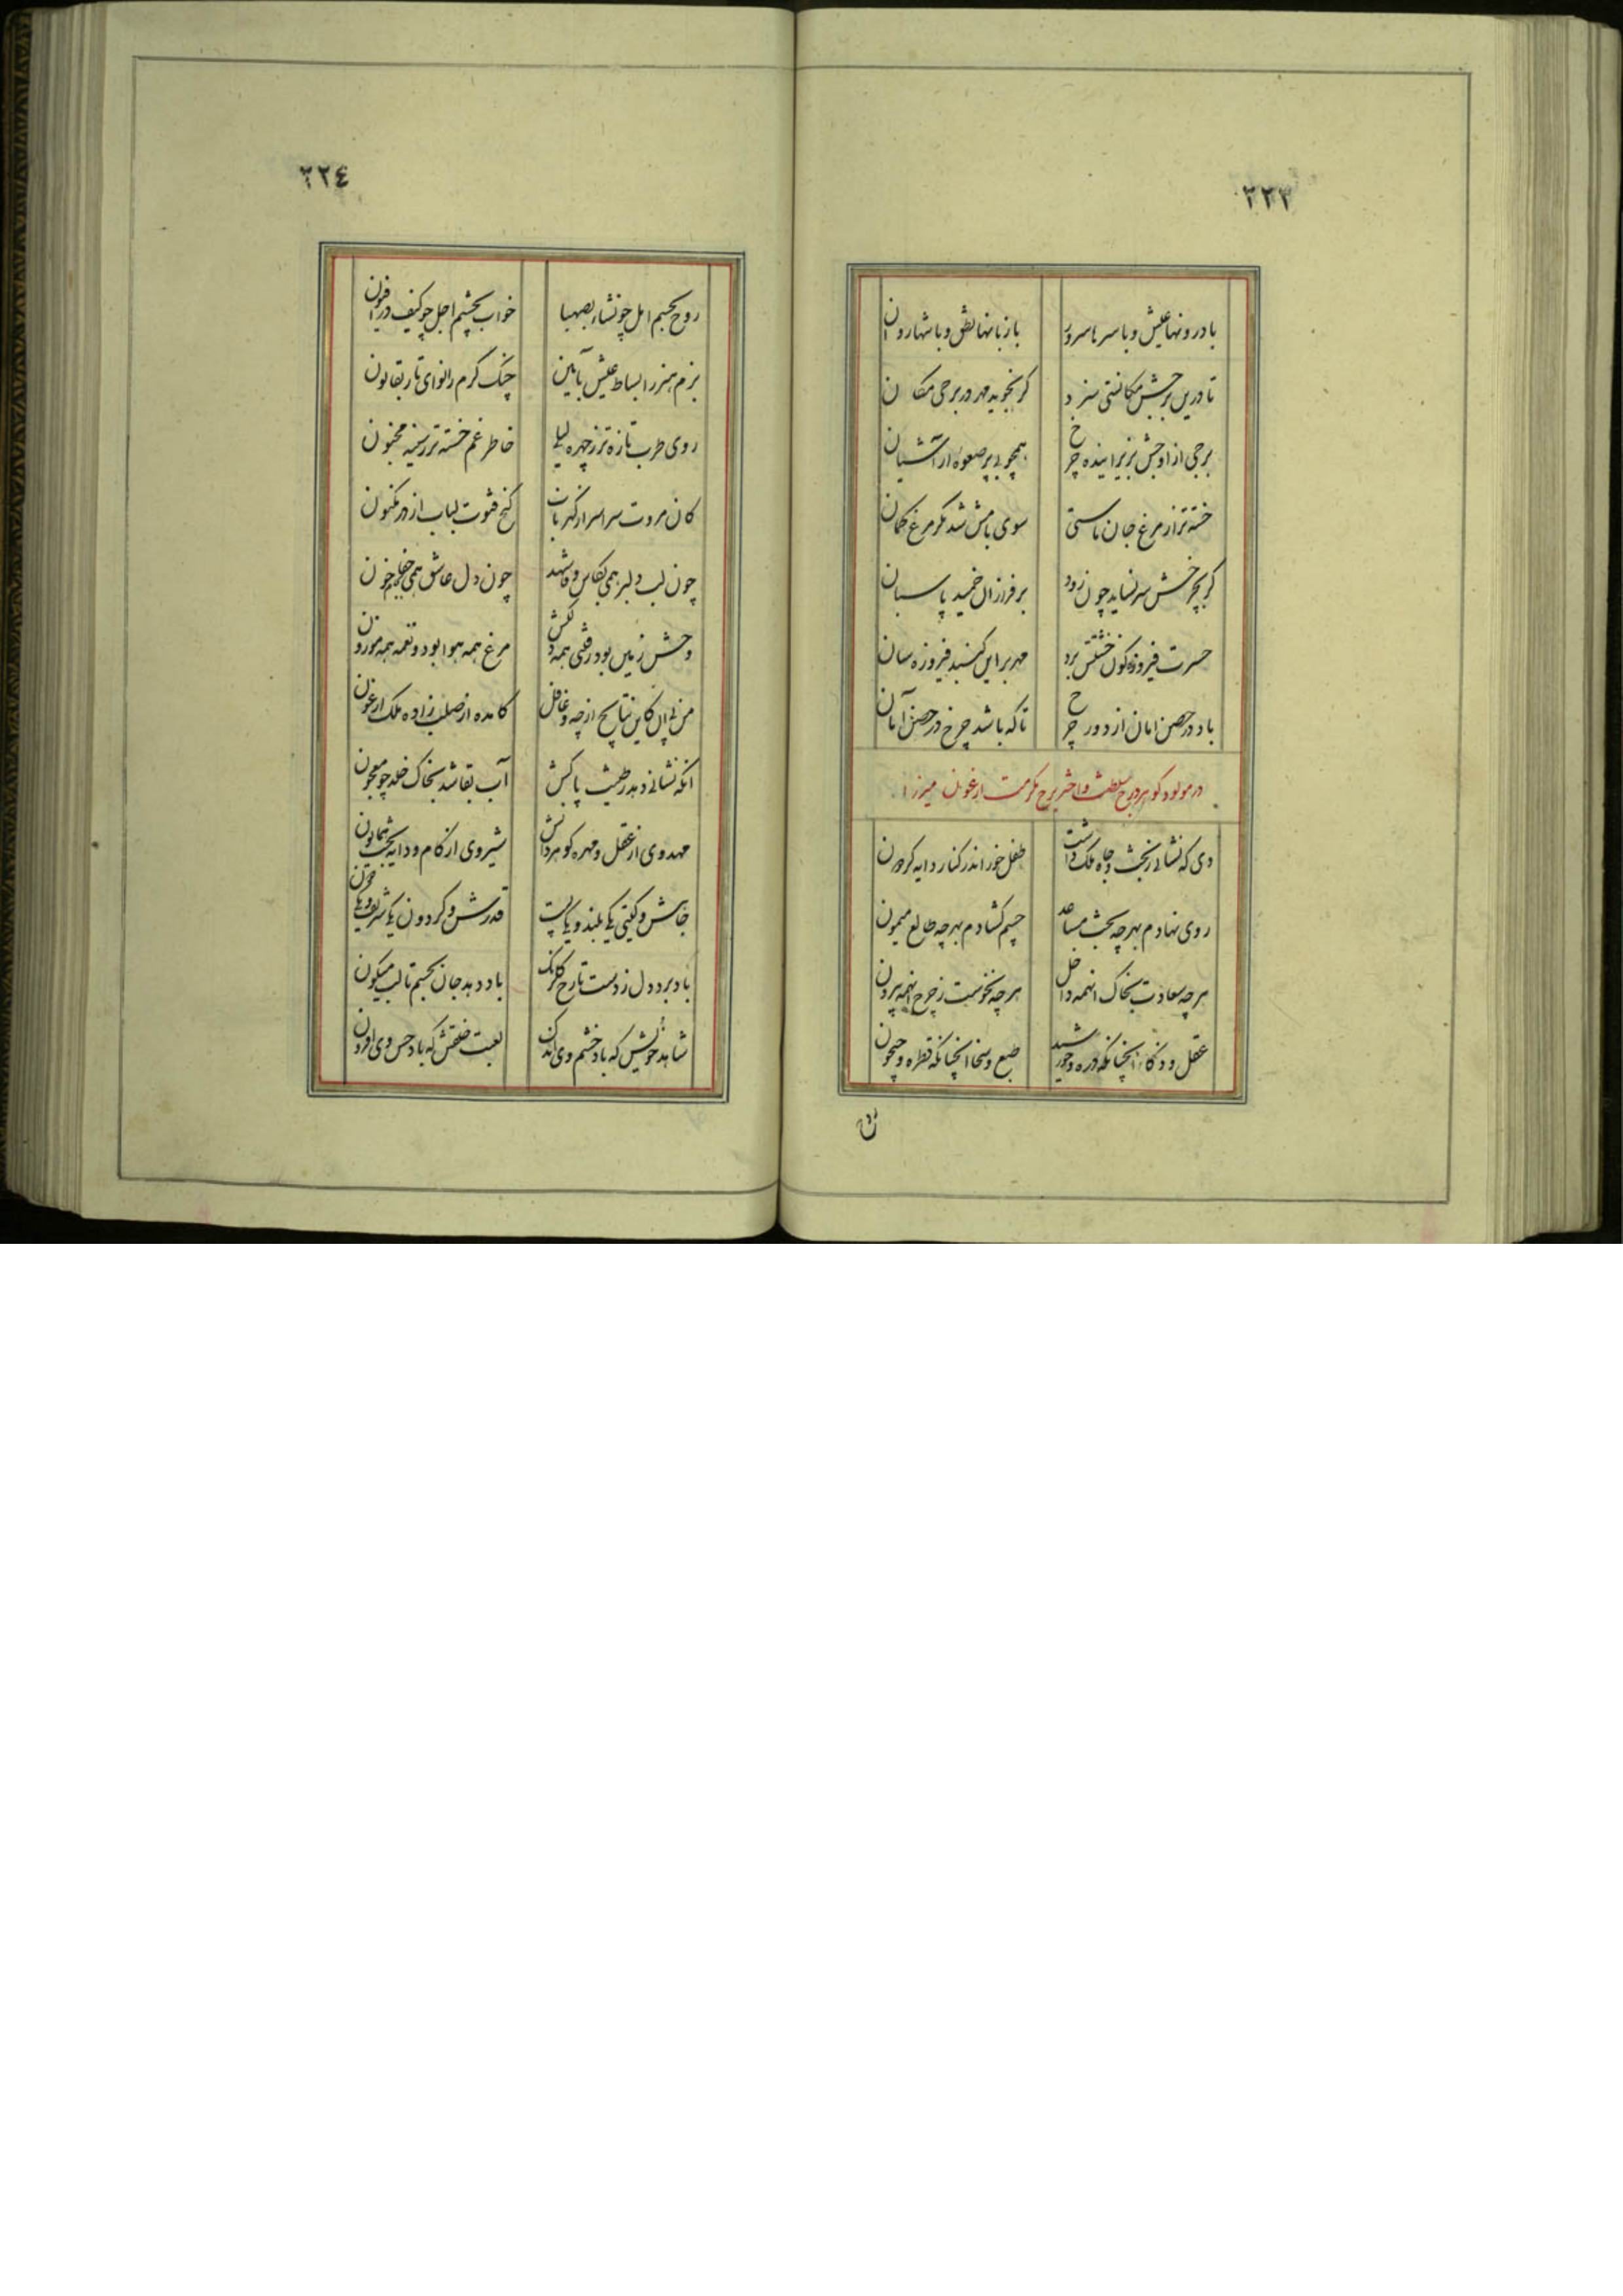 ۲۲۳
با درونها عیش و با سرها سرور بازبانها نطق و با تنها روان
تا درین برجش مکانستی سزد گر نجوید مهر در برجی مکان
برجی از اوجش بزیر اینده چرخ همچو بی پر صعوه از آشیان
خسته تر از مرغ جان ماستی سوی بامش شد مگر مرغ گمان
گر بچرخش سر نساید چون زود بر فرازان خمید پاسبان
حسرت فیروزه گون خشتش برد مهر بر این گنبد فیروزه سان
باد در حصن امان از دور چرخ تا که باشد چرخ در حصن آمان
در مولود گوهر درج سلطنت و اختر برج مکرمت ارغون میرزا
دی که نشانی ز بخت و جاه ملک داشت طفل خور اندر کنار دایه گردون
روی نهادم بهر چه بخت مساعد چشم گشادم بهر چه طالع میمون
هر چه سعادت بخاک انهمه داخل هر چه نحوست ز چرخ انهمه بیرون
عقل و ذکاء انچنانکه ذره و خورشید طبع و سخا انچنانکه قطره و جیحون
۲۲٤
روح بجسم امل چو نشاء بصهبا خواب بچشم اجل چو کیف در افیون
بزم هنر را بساط عیش بآیین چنک کرم را نوای تار بقانون
روی طرب تازه تر ز چهره لیلی خاطر غم خسته تر ز سینه مجنون
کان مروت سراسر از گهر باب گنج فتوت لباب از در مکنون
چون لب دلبر همی بکاس و قا شهد چون دل عاشق همی خون
وحش زمین بود رقص همه دلکش مرغ همه هوا بود و نغمه همه موزون
من ز پی ان کاین نتایج از چه و غافل کامده از صلب زاده ملک ارغون
انکه نشانی دهد ز طینت پاکش آب بقا شد بخاک خلد چو معجون
مهد وی از عقل و مهره گوهر دانش شیر وی از کام و دایه بخت همایون
جاهش و گیتی یکی بلند و یکی پست قدرش و گردون یکی شریف و یکی دون
باد برد دل ز دست تا رخ گلرنگ باد دهد جان بجسم تا لب میگون
شاهد خویش که باد خشم وی اندک لعبت خلقش که باد حسن وی افزون